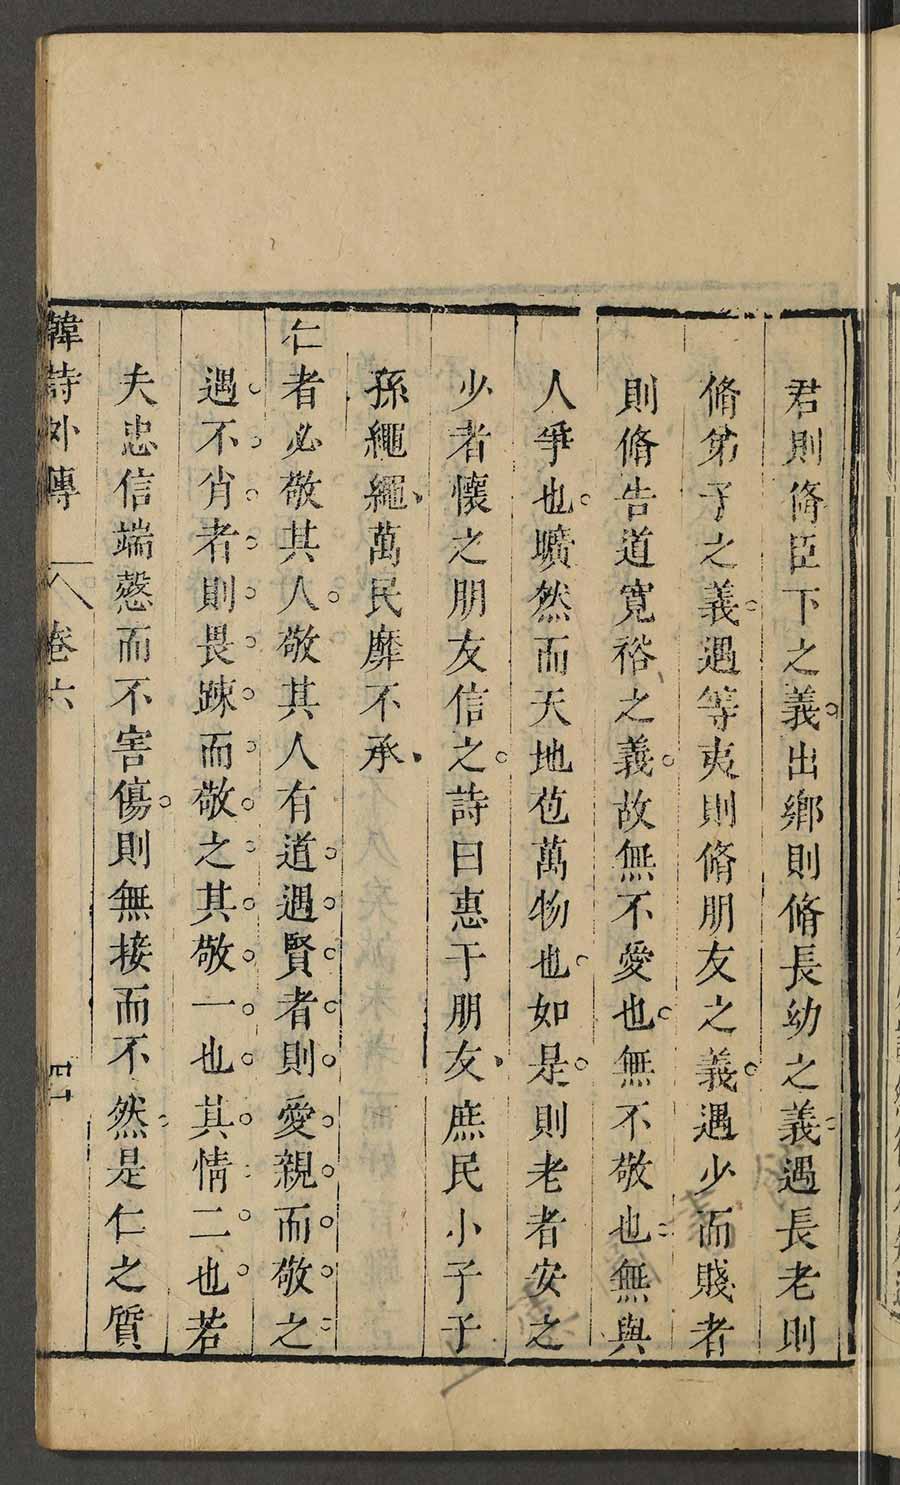 君則脩臣下之義出鄉則脩長幼之義遇長老則
脩弟子之義遇等夷則脩朋友之義遇少而賤者
則脩告道寛裕之義故無不愛也無不敬也無與
人爭也曠然而天地苞萬物也如是則老者安之
少者懷之朋友信之詩曰惠于朋友庶民小子子
孫繩繩萬民靡不承
仁者必敬其人敬其人有道遇賢者則愛親而敬之
遇不肖者則畏踈而敬之其敬一也其情二也若
夫忠信端慤而不害傷則無接而不然是仁之質
韓詩外傳 卷六 四